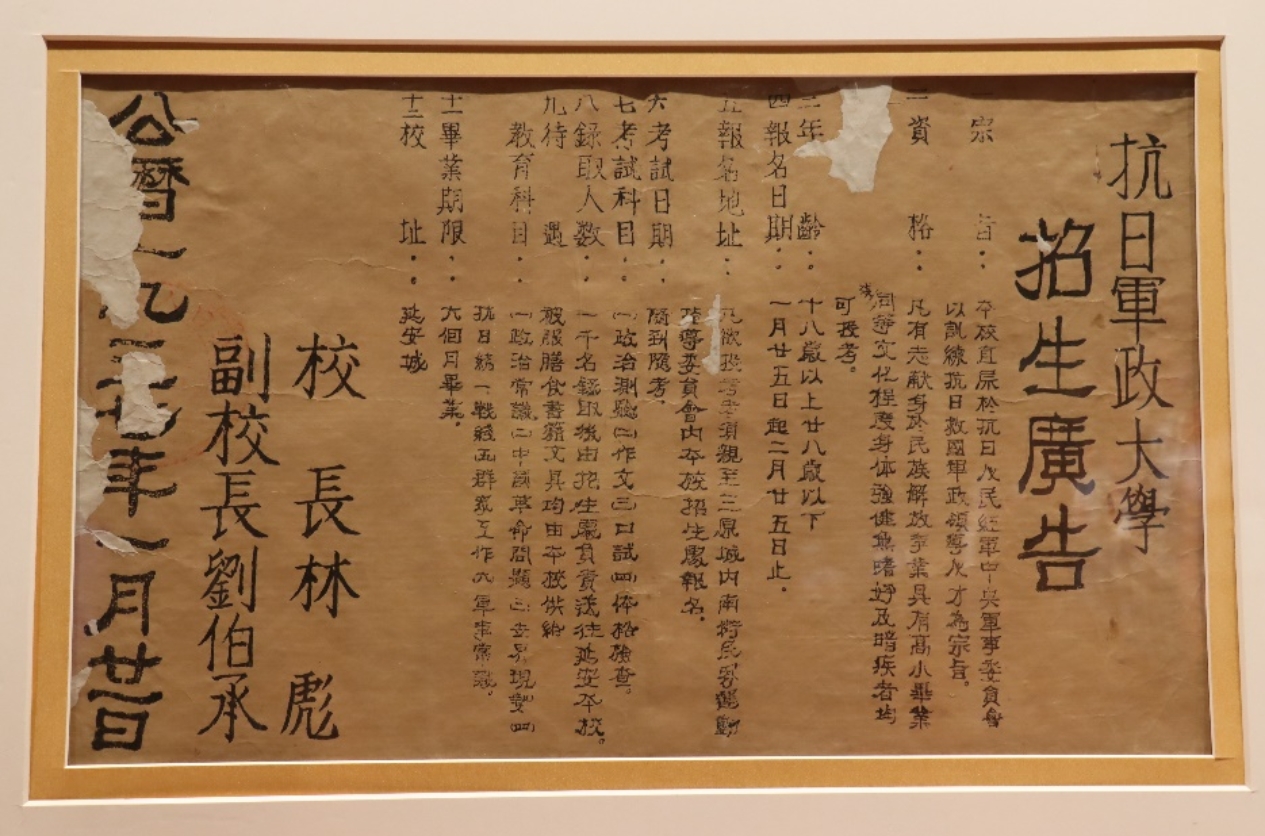 抗日軍政大學
招生廣告
一宗旨：本校直屬於抗日人民紅軍中央軍事委員會
以訓練抗日救國軍政領導人才為宗旨。
二資格：凡有志献身於民族解放事業具有高小畢業
同等文化程度身体強健無嗜好及暗疾者均
可投考。
三年齡：十八歲以上廿八歲以下
四報名日期：一月廿五日起二月廿五日止．
五報名地址：凡欲投考者須親至三原城内南街民眾運動
指導委員會内本校招生處報名．
六考試日期：隨到隨考．
七考試科目：㈠政治測驗㈡作文㈢口試㈣体格檢查。
八錄取人数：一千名錄取後由招生處負責送往延安本校。
九待遇：被服膳食書籍文具均由本校供給
教育科目：㈠政治常識㈡中國革命問題㈢
抗日統一戰綫㈤群眾工作㈥軍事常識．
十一畢業期限：六個月畢業．
十二校址：延安城
校長林彪
副校長劉伯承
公曆一九三七年一月廿一日